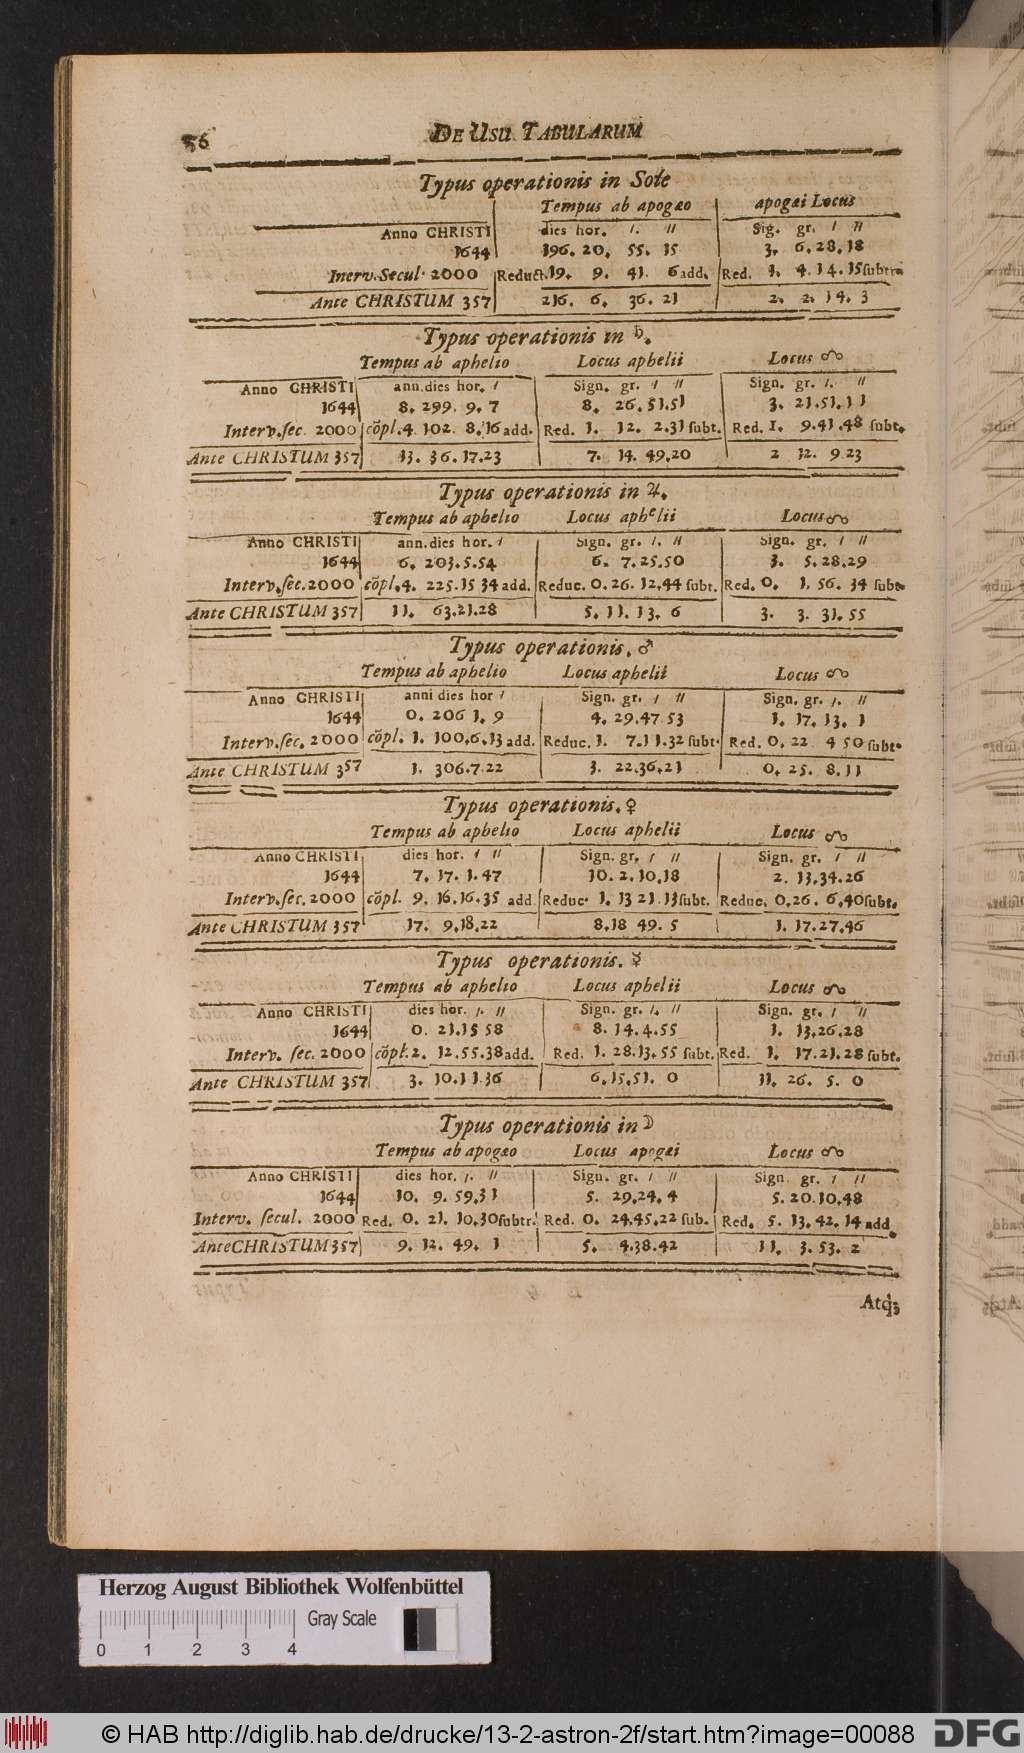 56 DE USU TABULARUM
Typus operationis in Sole
Tempus ab apogæo | apogæi Locus
Anno CHRISTI | dies hor. ı. ıı | Sig. gr. ı ıı
1644 | 196. 20. 55. 15 | 3. 6.28.18
Inerv. Secul. 2000 | Reduct. 19. 9. 41. 6 add. | Red. 1. 4.14.15 subtr.
Ante CHRISTUM 357 | 216. 6. 36. 21 | 2. 2. 14. 3
Typus operationis in ♄.
Tempus ab aphelio | Locus aphelii | Locus ☊
Anno CHRISTI | ann. dies hor. ı | Sign. gr. ı ıı | Sign. gr. ı. ıı
1644 | 8. 299. 9. 7 | 8. 26.51.51 | 3. 21.51.11
Interv. sec. 2000 | cõpl. 4. 102. 8. 16 add. | Red. 1. 12. 2.31 subt. | Red. 1. 9.41.48 subt.
Ante CHRISTUM 357 | 13. 36.17.23 | 7. 14. 49.20 | 2 12. 9 23
Typus operationis in ♃.
Tempus ab aphelio | Locus aphelii | Locus ☊
Anno CHRISTI | ann. dies hor. ı | Sign. gr. ı. ıı | Sign. gr. ı ıı
1644 | 6. 203.5.54 | 6. 7.25.50 | 3. 5.28.29
Interv. sec. 2000 | cõpl. 4. 225.15 34 add. | Reduc. 0.26.12.44 subt. | Red. 0. 1. 56. 34 subt.
Ante CHRISTUM 357 | 11. 63.21.28 | 5. 11. 13. 6 | 3. 3. 31. 55
Typus operationis. ♂
Tempus ab aphelio | Locus aphelii | Locus ☊
Anno CHRISTI | anni dies hor ı | Sign. gr. ı ıı | Sign. gr. ı. ıı
1644 | 0. 206 1. 9 | 4. 29.47 53 | 1. 17. 13. 1
Interv. sec. 2000 | cõpl. 1. 100.6.13 add. | Reduc. 1. 7.11.32 subt. | Red. 0. 22 4 50 subt.
Ante CHRISTUM 357 | 1. 306.7.22 | 3. 22.36.21 | 0. 25. 8.11
Typus operationis. ♀
Tempus ab aphelio | Locus aphelii | Locus ☊
Anno CHRISTI | dies hor. ı ıı | Sign. gr. ı ıı | Sign. gr. ı ıı
1644 | 7. 17. 1.47 | 10. 2.10.18 | 2. 13.34.26
Interv. sec. 2000 | cõpl. 9. 16.16.35 add. | Reduc. 1. 13 21.13 subt. | Reduc. 0.26. 6.40 subt.
Ante CHRISTUM 357 | 17. 9.18.22 | 8.18 49. 5 | 1. 17.27.46
Typus operationis. ☿
Tempus ab aphelio | Locus aphelii | Locus ☊
Anno CHRISTI | dies hor. ı. ıı | Sign. gr. ı. ıı | Sign. gr. ı ıı
1644 | 0. 21.15 58 | 8. 14.4.55 | 1. 13.26.28
Interv. sec. 2000 | cõpl. 2. 12.55.38 add. | Red. 1. 28.13.55 subt. | Red. 1. 17.21.28 subt.
Ante CHRISTUM 357 | 3. 10.11.36 | 6.15.51. 0 | 11. 26. 5. 0
Typus operationis in ☽
Tempus ab apogæo | Locus apogæi | Locus ☊
Anno CHRISTI | dies hor. ı. ıı | Sign. gr. ı ıı | Sign. gr. ı ıı
1644 | 10. 9. 59.31 | 5. 29.24. 4 | 5. 20.10.48
Interv. secul. 2000 | Red. 0. 21. 10.30 subtr. | Red. 0. 24.45.22 sub. | Red. 5. 13. 42. 14 add
Ante CHRISTUM 357 | 9. 12. 49. 1 | 5. 4.38.42 | 11. 3. 53. 2
Atq́;
Herzog August Bibliothek Wolfenbüttel
Gray Scale
0 1 2 3 4
© HAB http://diglib.hab.de/drucke/13-2-astron-2f/start.htm?image=00088 DFG